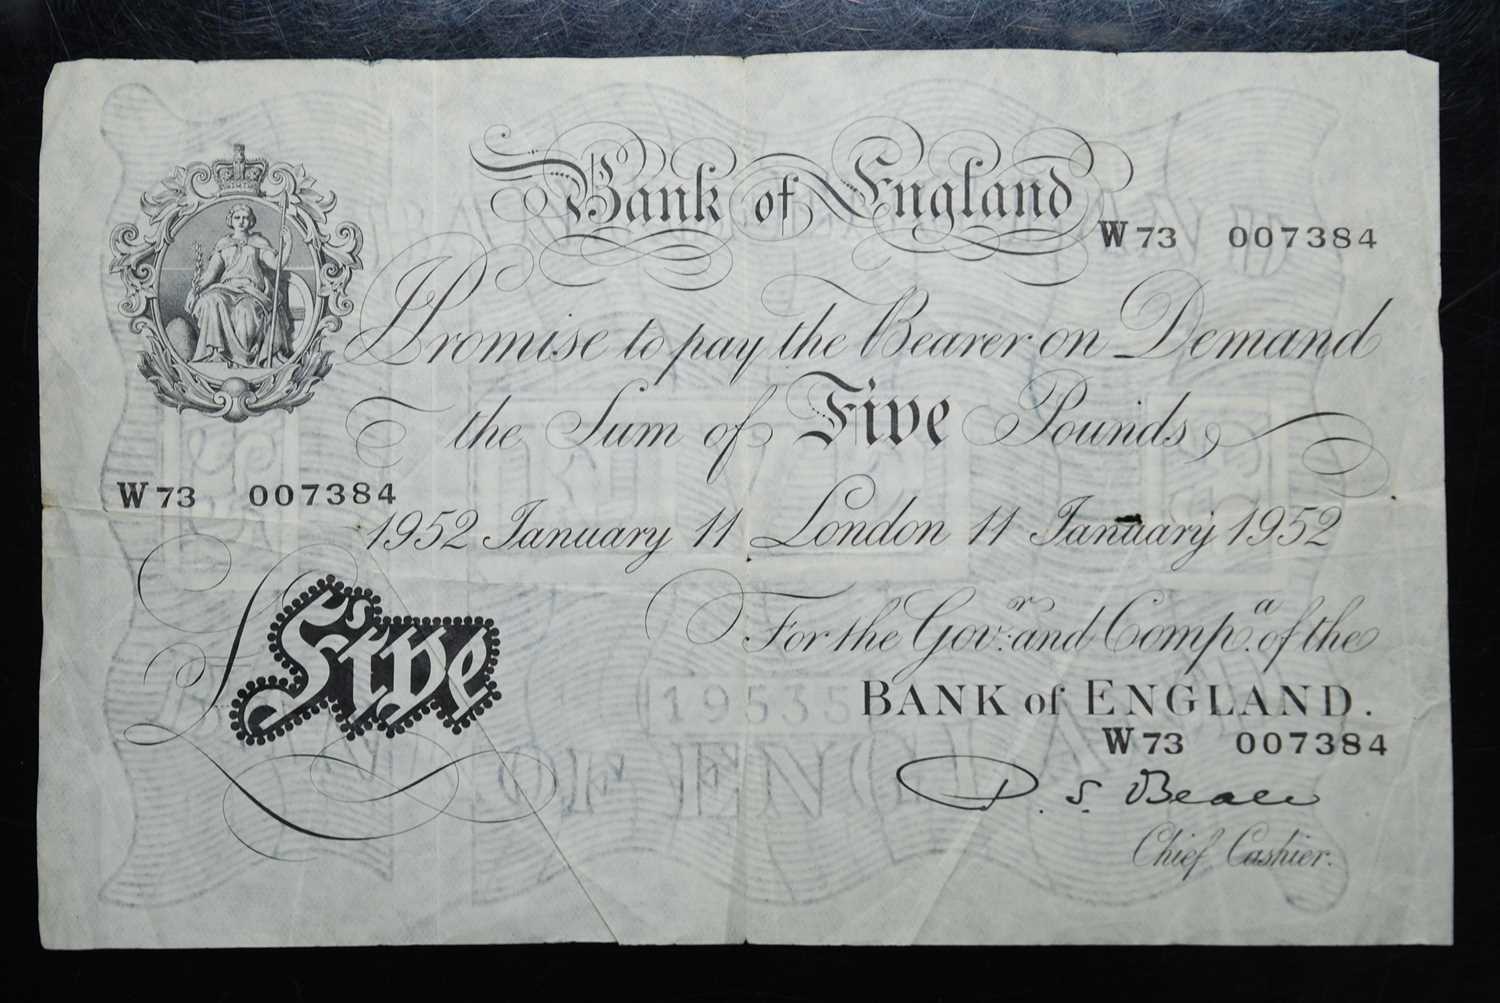 Bank of England
W73 007384
I Promise to pay the Bearer on Demand
the Sum of Five Pounds
W73 007384
1952 January 11 London 11 January 1952
Five
For the Govr. and Compa. of the
BANK of ENGLAND.
W73 007384
P. S. Beale
Chief Cashier.
OF ENGLA